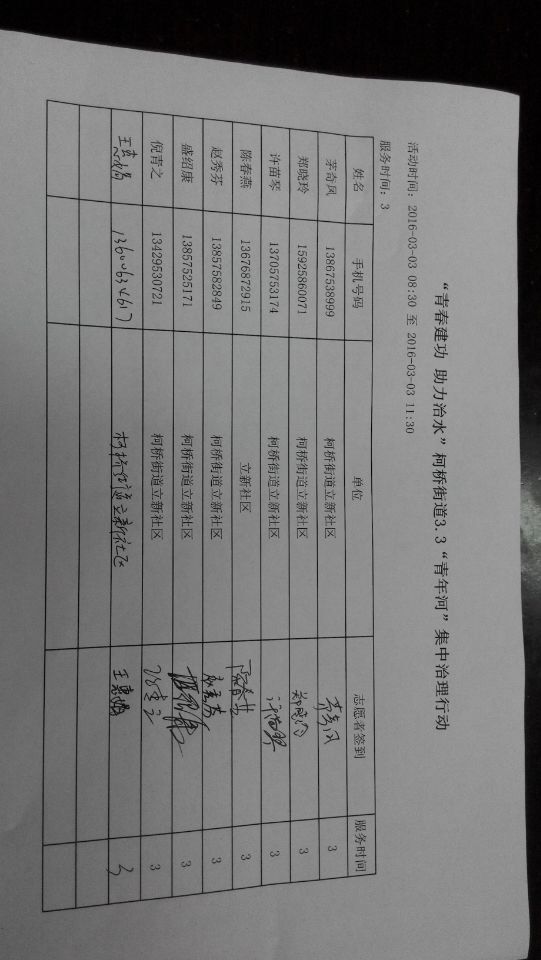 “青春建功 助力治水”柯桥街道3.3“青年河”集中治理行动
活动时间: 2016-03-03 08:30 至 2016-03-03 11:30
服务时间: 3
姓名 手机号码 单位 志愿者签到 服务时间
茅奇风 13867538999 柯桥街道立新社区 茅奇风 3
郑晓玲 15925860071 柯桥街道立新社区 郑晓玲 3
许苗琴 13705753174 柯桥街道立新社区 许苗琴 3
陈春燕 13676872915 立新社区 陈春燕 3
赵秀芬 13857582849 柯桥街道立新社区 赵秀芬 3
盛绍康 13857525171 柯桥街道立新社区 盛绍康 3
倪青之 13429530721 柯桥街道立新社区 3
13600634617 柯桥街道立新社区 3